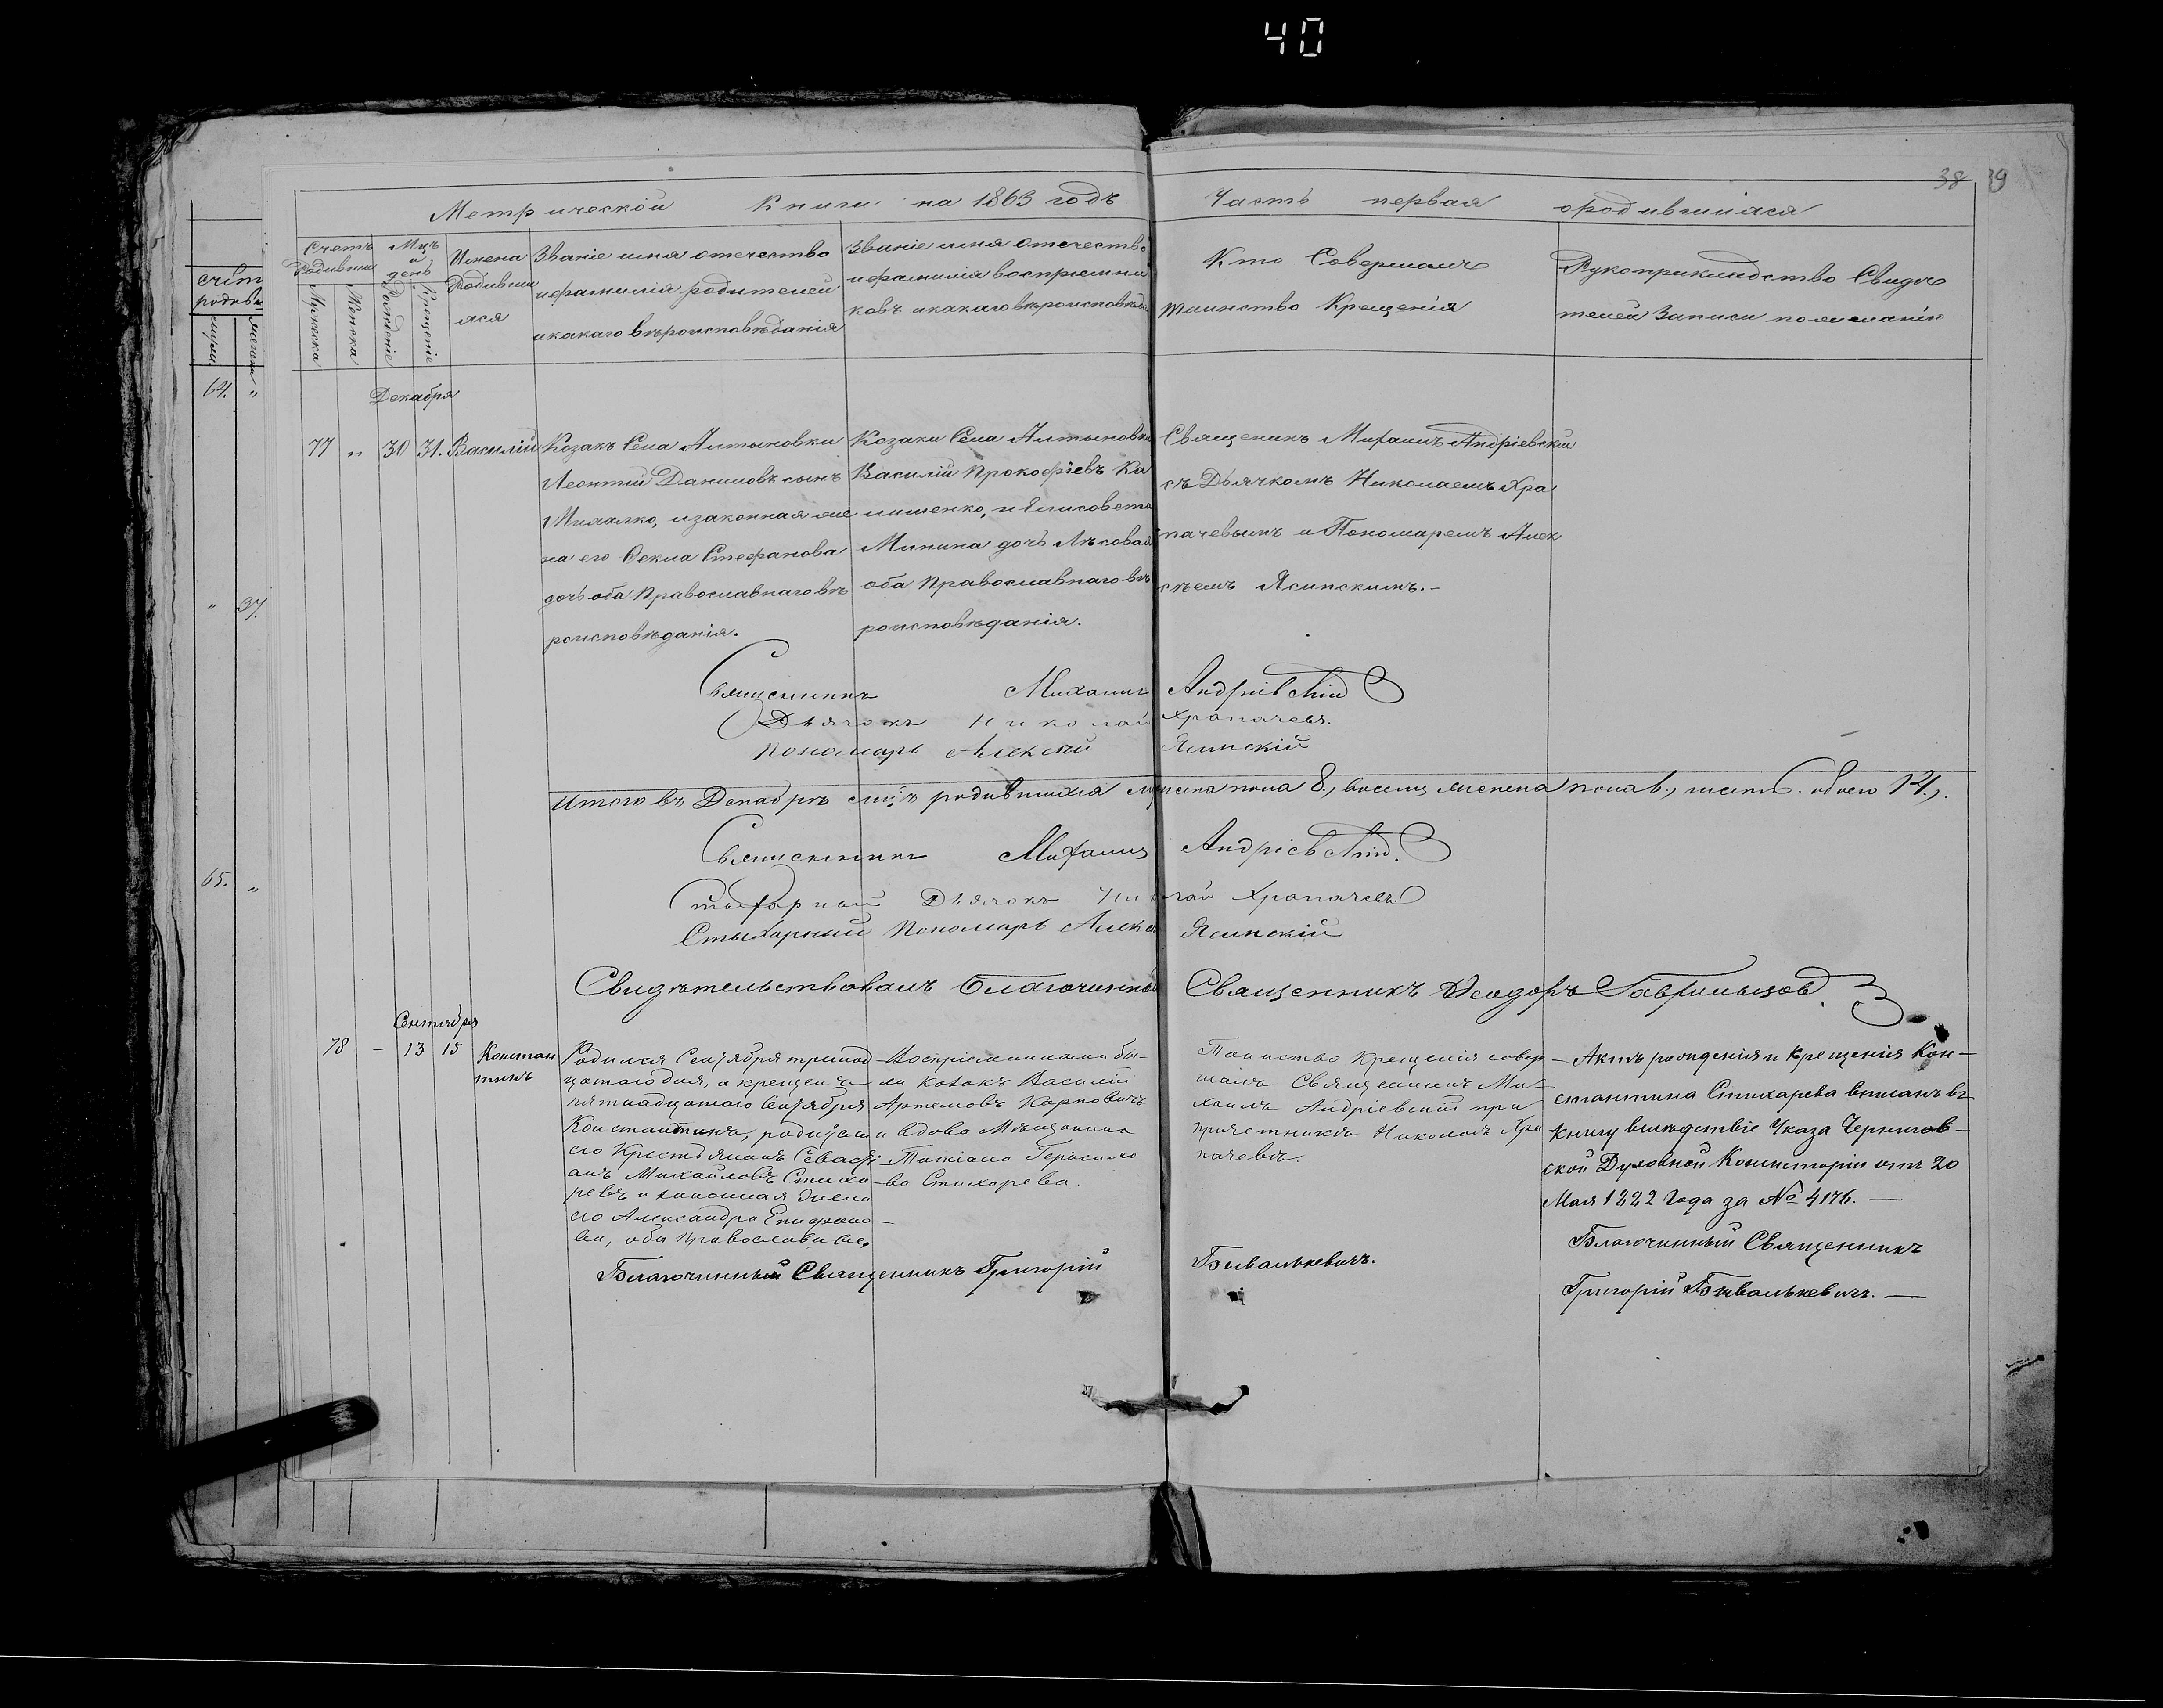 40
38 39
Метрической Книги на 1863 годъ Часть первая ородившихся
Счетъ Родивши
Мужеска
Женска
Мцъ и день
Рожденіе
Крещеніе
Имена Родивши
яся
Званіе имя отечество
ифамилія родителей
икакаго вѣроисповѣданія
Званіе имя отечество
ифамилія воспріемни
ковъ икакаго вѣроисповѣдан
Кто Совершалъ
таинство Крещенія
Рукоприкладство Свидѣ
телей Записи пожеланію
счет
родив
64. "
" 37.
65. "
Декабря
77 " 30 31. Василій
Козакъ Села Алтыновки
Леонтій Даниловъ сынъ
изаконная же
на его Ѳекла Стефанова
дочь оба Православнаго вѣ
роисповѣданія.
Козаки Села Алтыновки
Василій Прокофіевъ Ка
лишенко, и Елисовета
Минина дочь Лѣсовая
оба Православнаго вѣ
роисповѣданія.
Священикъ Михаилъ Андріевскій
съ Дьячкомъ Николаемъ Хра
пачевымъ и Пономаремъ Алек
сѣемъ Ясинскимъ.-
Священникъ Михаилъ Андріевскій
Дьячокъ Николай Храпачевъ.
Пономарь Алексѣй Ясинскій
Итого въ Декабрѣ мцѣ родившихся мужеска пола 8., восемь женска пола 6., шесть. обоего 14.,.
Священникъ Михаилъ Андріевскій.
Стихарный Дьячокъ Николай Храпачевъ
Стыхарный Пономарь Алексѣ Ясинскій
Свидѣтельствовалъ Благочинный Священникъ Ѳеодоръ Гаврильцов.
Сентября
78 - 13 15 Констан
тинъ
Родился Сентября тринад
цатаго дня, а крещенъ
пятнадцатаго Сентября
Константинъ, родители
его Крестьянинъ Севасті
анъ Михайловъ Стиха
ревъ и законная жена
его Александра Епифано-
ва, оба Православные.
Воспріемниками бы-
ли Козакъ Василій
Артемовъ Карповичъ
и вдова Мѣщанина
Татіана Герасимо
ва Стихарева.
Таинство Крещенія совер
шалъ Священникъ Ми-
хаилъ Андріевскій при
причетникѣ Николаѣ Хра
пачевѣ.
Актъ рожденія и крещенія Кон-
стантина Стихарева вписанъ въ
книгу вслѣдствіе Указа Чернигов-
ской Духовной Консисторіи отъ 20
Мая 1882 Года за № 4176. —
Благочинный Священникъ
Григорій Бывалькевичъ. —
Благочинный Священникъ Григорій Бывалькевичъ.